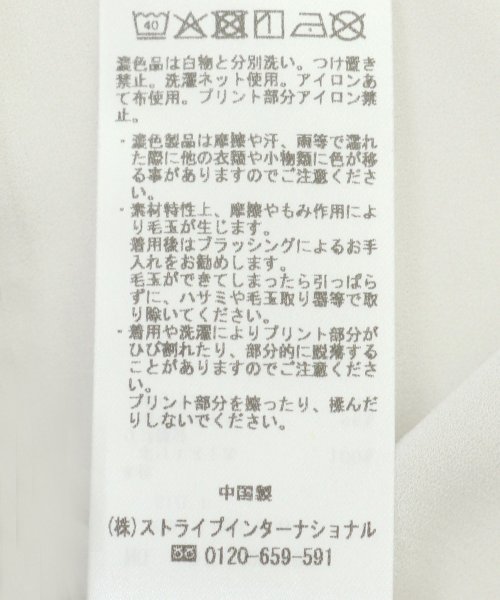 40
濃色品は白物と分別洗い。つけ置き
禁止。洗濯ネット使用。アイロンあ
て布使用。プリント部分アイロン禁
止。
・濃色製品は摩擦や汗、雨等で濡れ
た際に他の衣類や小物類に色が移
る事がありますのでご注意くださ
い。
・素材特性上、摩擦やもみ作用によ
り毛玉が生じます。
着用後はブラッシングによるお手
入れをお勧めします。
毛玉ができてしまったら引っぱら
ずに、ハサミや毛玉取り器等で取
り除いてください。
・着用や洗濯によりプリント部分が
ひび割れたり、部分的に脱落する
ことがありますのでご注意くださ
い。
プリント部分を擦ったり、揉んだ
りしないでください。
中国製
(株)ストライプインターナショナル
0120-659-591